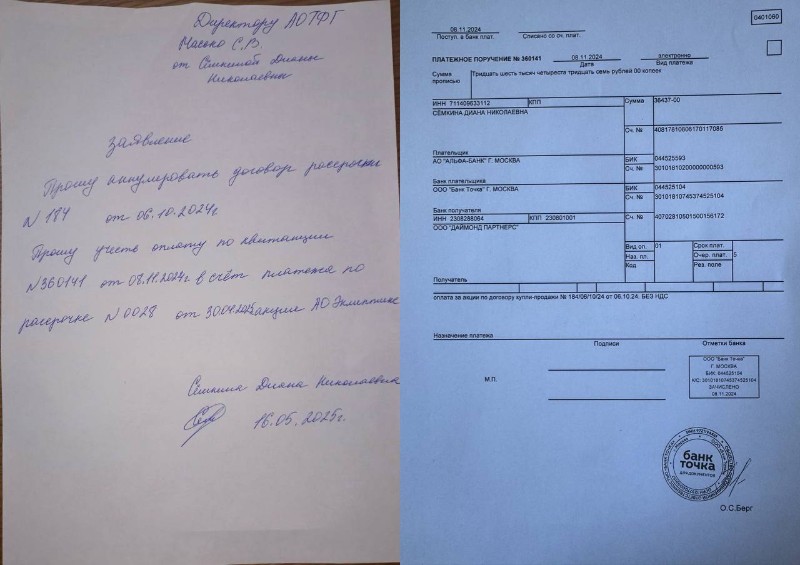 Директору АОТФГ
Масько С.В.
от Сёмкиной Дианы
Николаевны
Заявление
Прошу аннулировать договор рассрочки
N 184 от 06.10.2024г.
Прошу учесть оплату по квитанции
N360141 от 08.11.2024г в счёт платежа по
рассрочке N 0028 от 30.04.2025 акции АО
Сёмкина Диана Николаевна
16.05.2025г.
0401060
08.11.2024
Поступ. в банк плат.
Списано со сч. плат.
ПЛАТЕЖНОЕ ПОРУЧЕНИЕ № 360141
08.11.2024
Дата
электронно
Вид платежа
Сумма прописью
Тридцать шесть тысяч четыреста тридцать семь рублей 00 копеек
ИНН 711409633112
КПП
Сумма
36437-00
СЁМКИНА ДИАНА НИКОЛАЕВНА
Сч. №
40817810606170117085
Плательщик
АО "АЛЬФА-БАНК" Г. МОСКВА
БИК
044525593
Сч. №
30101810200000000593
Банк плательщика
ООО "Банк Точка" Г. МОСКВА
БИК
044525104
Сч. №
30101810745374525104
Банк получателя
ИНН 2308288064
КПП 230801001
Сч. №
40702810601500156172
ООО "ДАЙМОНД ПАРТНЕРС"
Вид оп.
01
Срок плат.
Наз. пл.
Очер. плат.
5
Код
Рез. поле
Получатель
оплата за акции по договору купли-продажи № 184/06/10/24 от 06.10.24. БЕЗ НДС
Назначение платежа
Подписи
Отметки банка
М.П.
ООО "Банк Точка"
Г. МОСКВА
БИК: 044525104
К/С: 30101810745374525104
ЗАЧИСЛЕНО
08.11.2024
банк
точка
для документов
О.С.Берг